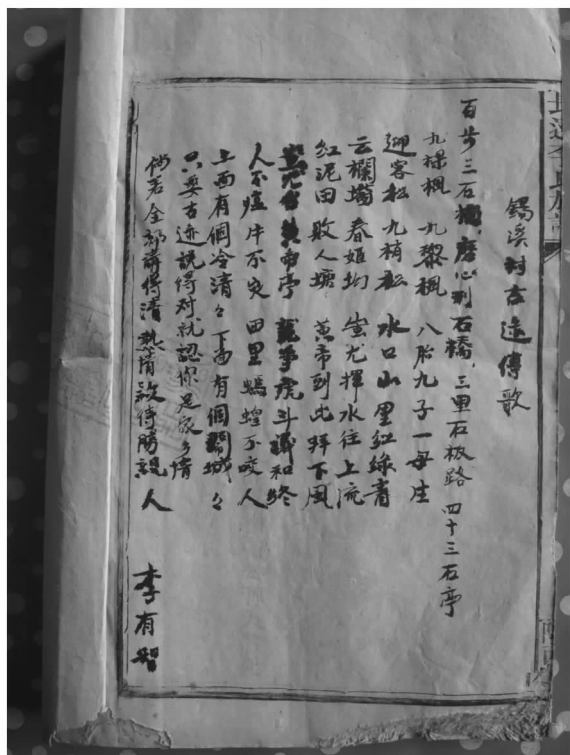 鍚溪村古迹傳歌
百步三石橋,磨心到石橋,三里石板路 四十三石亭
九棵楓 九黎楓 八胎九子一母生
迎客松 九梢松 水口山里紅綠青
云欄塝 春姬坳 蚩尤揮水往上流
紅泥田 敗人塘 黃帝到此拜下風
蚩尤 黃帝亭 龍爭虎斗議和終
人不瘟牛不灾 田里螞蝗不咬人
上面有個冷清々 下面有個鬧城々
只要古迹說得对就認你是家乡情
倘若全部講得清 热情款待勝親人
李有智